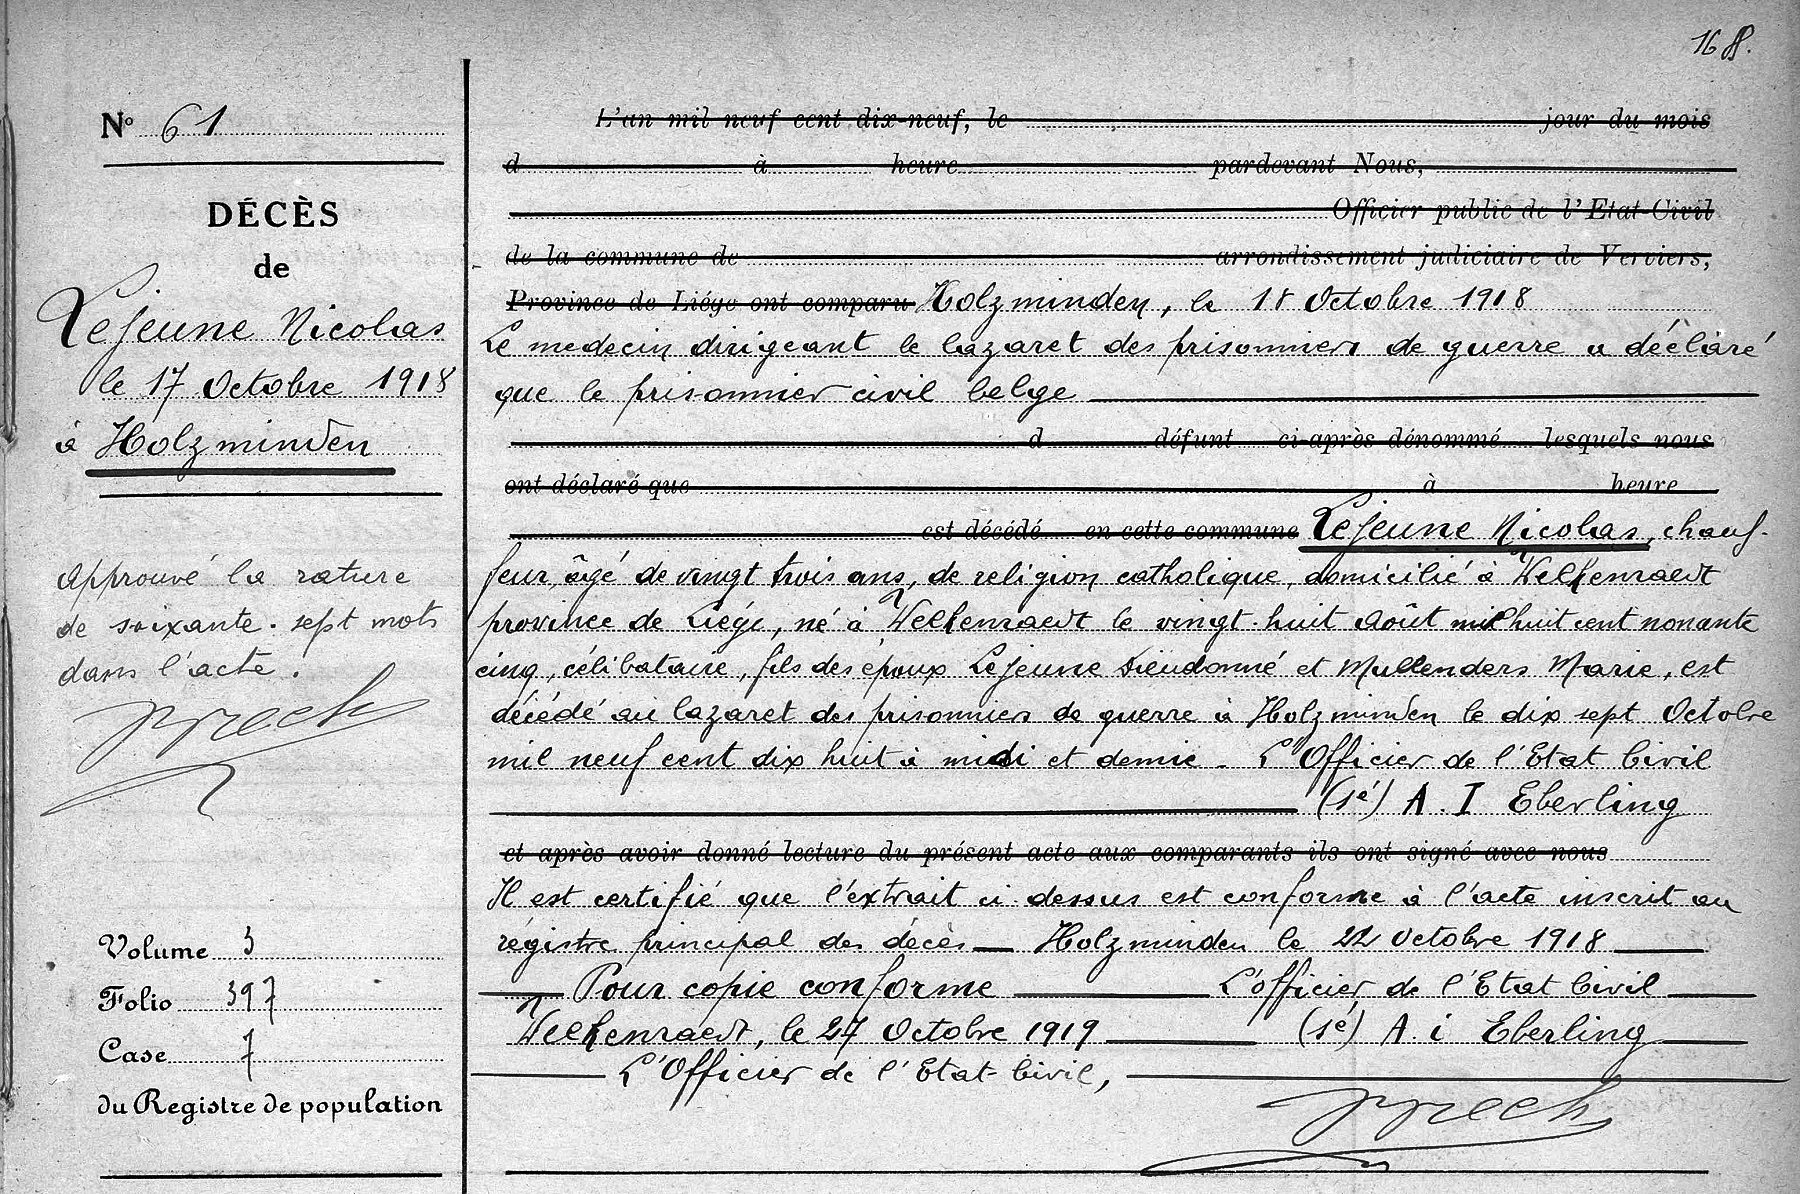 168.
N° 61
DÉCÈS
de
Lejeune Nicolas
le 17 Octobre 1918
à Holzminden
Approuvé la rature
de soixante-sept mots
dans l'acte.
Volume 3
Folio 397
Case 7
du Registre de population
L'an mil neuf cent dix-neuf, le jour du mois
d à heure pardevant Nous,
Officier public de l'Etat-Civil
de la commune de arrondissement judiciaire de Verviers,
Province de Liége ont comparu Holzminden, le 18 Octobre 1918
Le medecin dirigeant le lazaret des prisonniers de guerre a déclaré
que le prisonnier civil belge
d défunt ci-après dénommé lesquels nous
ont déclaré que à heure
est décédé en cette commune Lejeune Nicolas, chauf-
feur, âgé de vingt trois ans, de religion catholique, domicilié à Welkenraedt
province de Liége, né à Welkenraedt le vingt-huit Août mil huit cent nonante
cinq, célibataire, fils des époux Lejeune Dieudonné et Mullenders Marie, est
décédé au lazaret des prisonniers de guerre à Holzminden le dix sept Octobre
mil neuf cent dix huit à midi et demie - L'Officier de l'Etat Civil
(sé) A. I Eberling
et après avoir donné lecture du présent acte aux comparants ils ont signé avec nous
Il est certifié que l'extrait ci dessus est conforme à l'acte inscrit au
régistre principal des décès — Holzminden le 22 Octobre 1918
Pour copie conforme L'officier de l'Etat Civil
Welkenraedt, le 27 Octobre 1919 (sé) A. i Eberling
L'Officier de l'Etat-Civil,